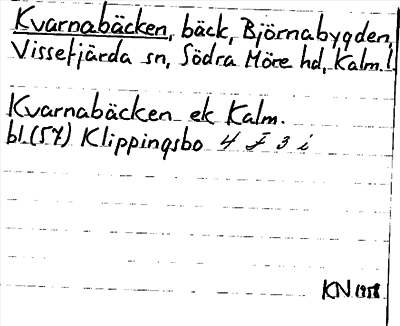 Kvarnabäcken, bäck, Björnabygden,
Vissefjärda sn, Södra Möre hd, Kalm. l.
Kvarnabäcken ek Kalm.
bl.(57) Klippingsbo 4 F 3 i
KN 1958